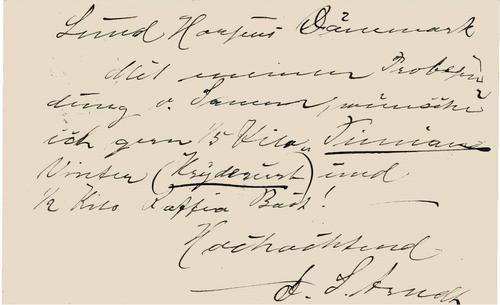 Lund Horsens Dänemark
Mit meiner Probesen
dung v. Samen, wünsche
ich gern 1/5 Kilo Timian
Vinter (Kryderurt) und
1/2 Kilo Raffia Bast!
Hochachtend
S. Arndt